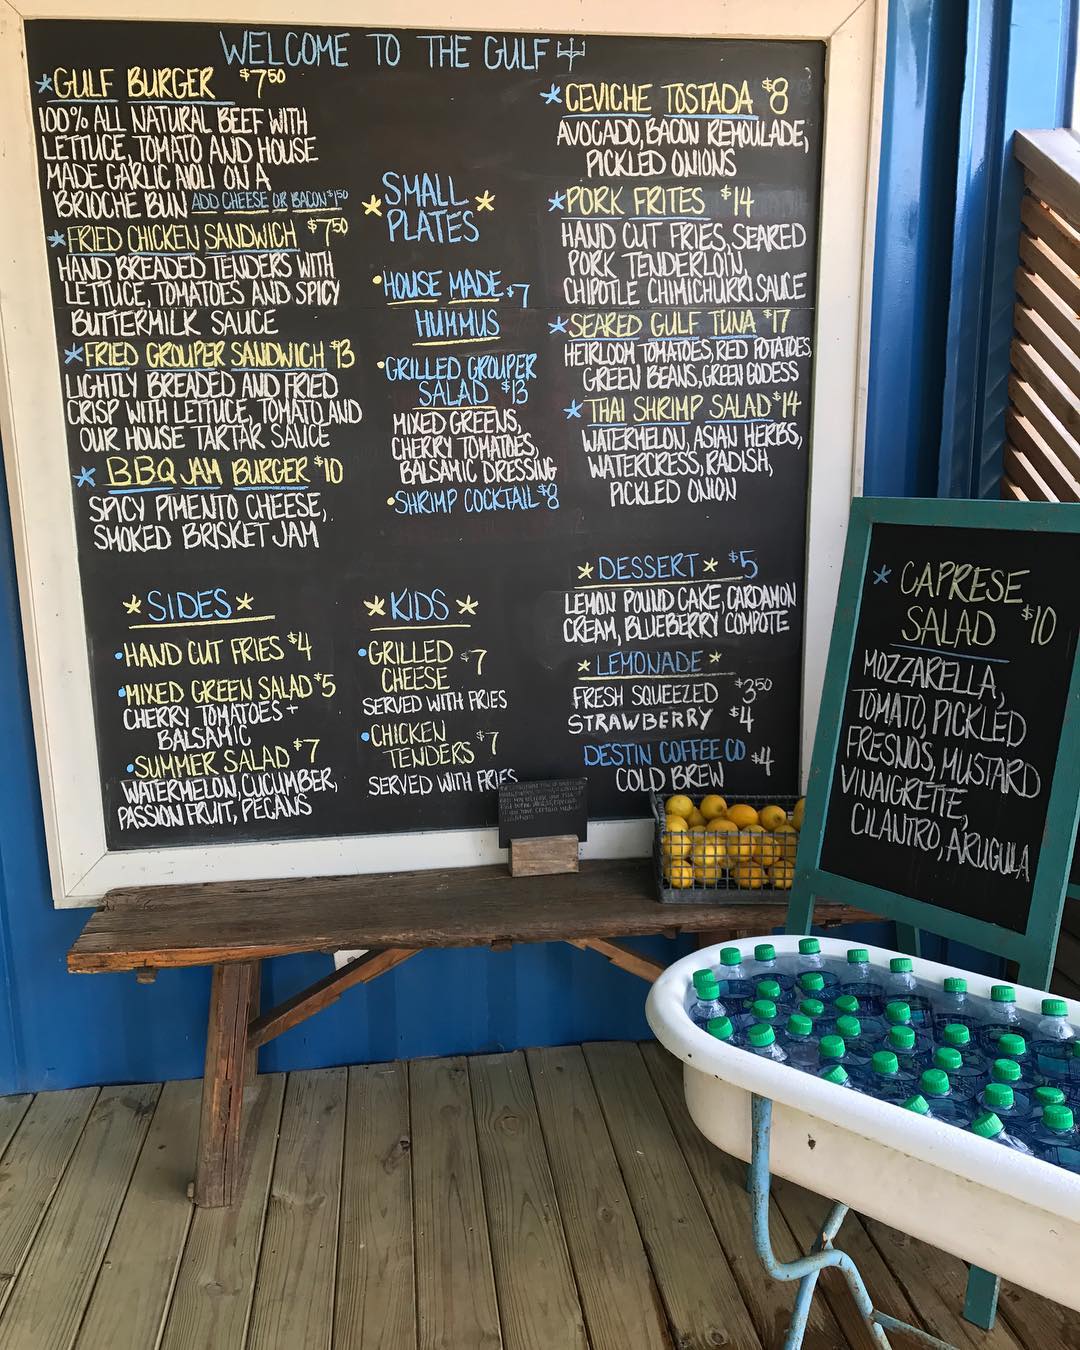 WELCOME TO THE GULF
*GULF BURGER $7.50
100% ALL NATURAL BEEF WITH
LETTUCE, TOMATO AND HOUSE
MADE GARLIC AIOLI ON A
BRIOCHE BUN ADD CHEESE OR BACON $1.50
*FRIED CHICKEN SANDWICH $7.50
HAND BREADED TENDERS WITH
LETTUCE, TOMATOES AND SPICY
BUTTERMILK SAUCE
*FRIED GROUPER SANDWICH $13
LIGHTLY BREADED AND FRIED
CRISP WITH LETTUCE, TOMATO AND
OUR HOUSE TARTAR SAUCE
*BBQ JAM BURGER $10
SPICY PIMENTO CHEESE,
SMOKED BRISKET JAM
*SMALL
PLATES*
•HOUSE MADE $7
HUMMUS
•GRILLED GROUPER
SALAD $13
MIXED GREENS,
CHERRY TOMATOES,
BALSAMIC DRESSING
•SHRIMP COCKTAIL $8
*CEVICHE TOSTADA $8
AVOCADO, BACON REMOULADE,
PICKLED ONIONS
*PORK FRITES $14
HAND CUT FRIES, SEARED
PORK TENDERLOIN,
CHIPOTLE CHIMICHURRI SAUCE
*SEARED GULF TUNA $17
HEIRLOOM TOMATOES, RED POTATOES,
GREEN BEANS, GREEN GODESS
*THAI SHRIMP SALAD $14
WATERMELON, ASIAN HERBS,
WATERCRESS, RADISH,
PICKLED ONION
*SIDES*
•HAND CUT FRIES $4
•MIXED GREEN SALAD $5
CHERRY TOMATOES +
BALSAMIC
•SUMMER SALAD $7
WATERMELON, CUCUMBER,
PASSIONFRUIT, PECANS
*KIDS*
•GRILLED
CHEESE $7
SERVED WITH FRIES
•CHICKEN
TENDERS $7
SERVED WITH FRIES
*DESSERT* $5
LEMON POUND CAKE, CARDAMON
CREAM, BLUEBERRY COMPOTE
*LEMONADE*
FRESH SQUEEZED $3.50
STRAWBERRY $4
DESTIN COFFEE CO $4
COLD BREW
*CAPRESE
SALAD $10
MOZZARELLA,
TOMATO, PICKLED
FRESNOS, MUSTARD
VINAIGRETTE,
CILANTRO, ARUGULA